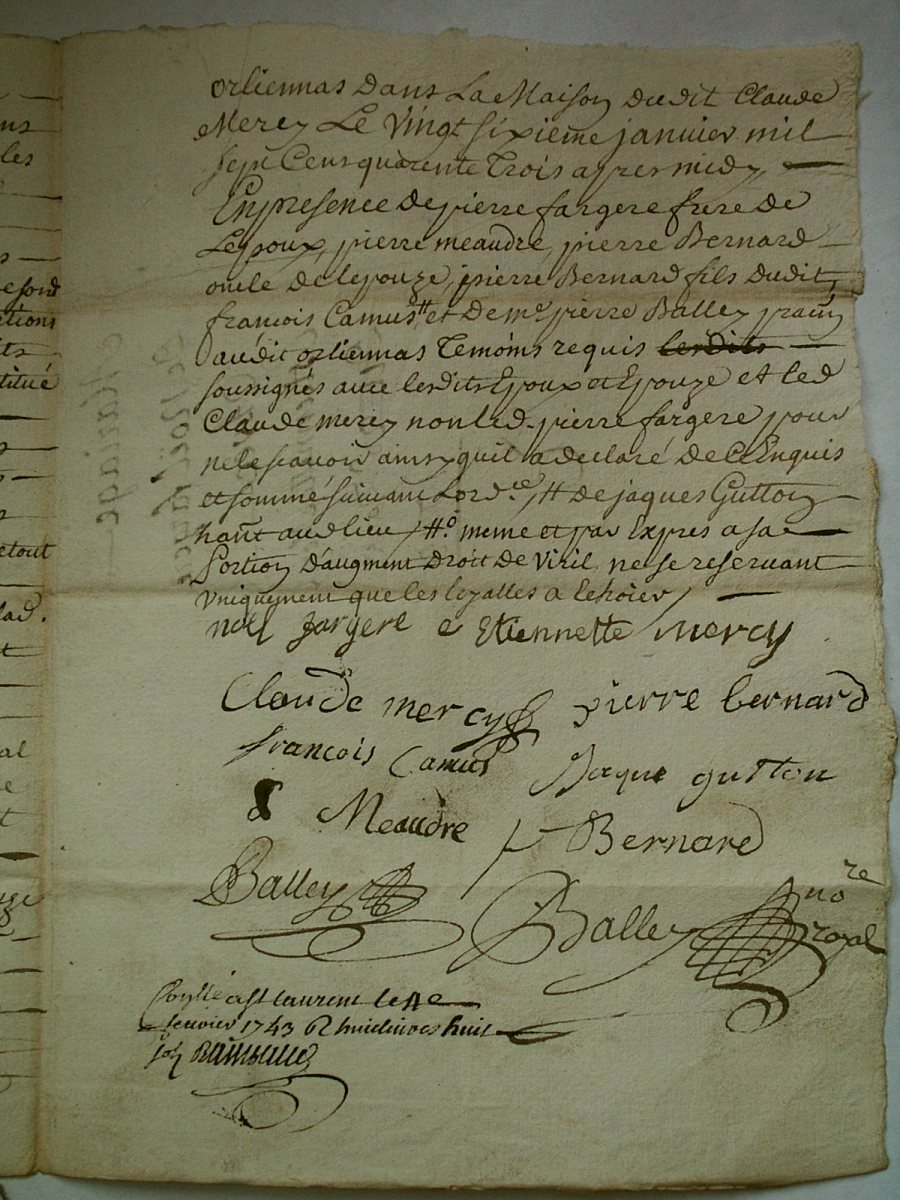 orliennas Dans La Maison dudit Claude
Mercy Le Vingt sixieme janvier mil
sept Cens quarente Trois apres midy
En presence de pierre fargere frere de
Lepoux, pierre meaudre, pierre Bernard
oncle de lepouze, pierre Bernard fils dudit,
francois Camus # et de me pierre Balley
audit orliennas Temoins requis lesdits
soussignés avec lesdits Epoux et Epouze et led
Claude mercy non led. pierre fargere pour
ne le scavoir ainsy quil a declaré de ce Enquis
et sommé suivant Lord.ce, # de jaques Gutton
hañt aud lieu / #o meme et par Expres a sa
Portion D'augment Droit de Viril ne se reservant
Uniquement que les
noel fargere e Etiennette Mercy
Claude mercy pierre bernard
francois Camus Jaque gutton
Meaudre Bernard
Balley Balley no re
royal
a st laurent le
fevrier 1743 R huit